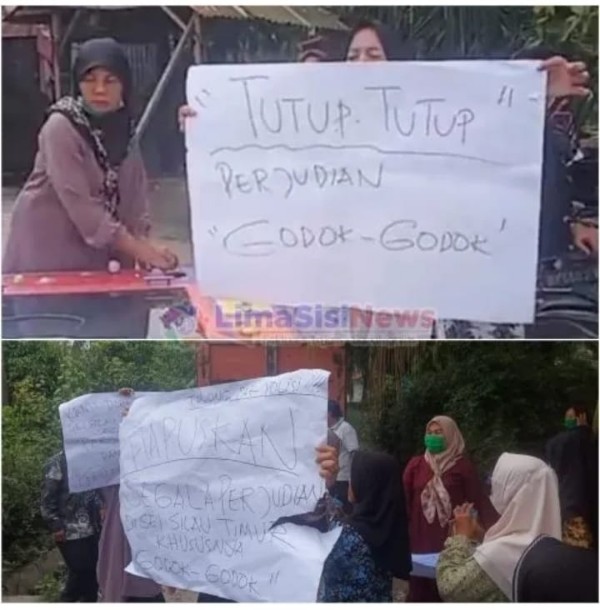 "TUTUP. TUTUP"
PERJUDIAN
"GODOK-GODOK"
LimaSisiNews
HAPUSKAN
SEGALA PERJUDIAN
DI SEI SILAU TIMUR
KHUSUSNSA
GODOK-GODOK"